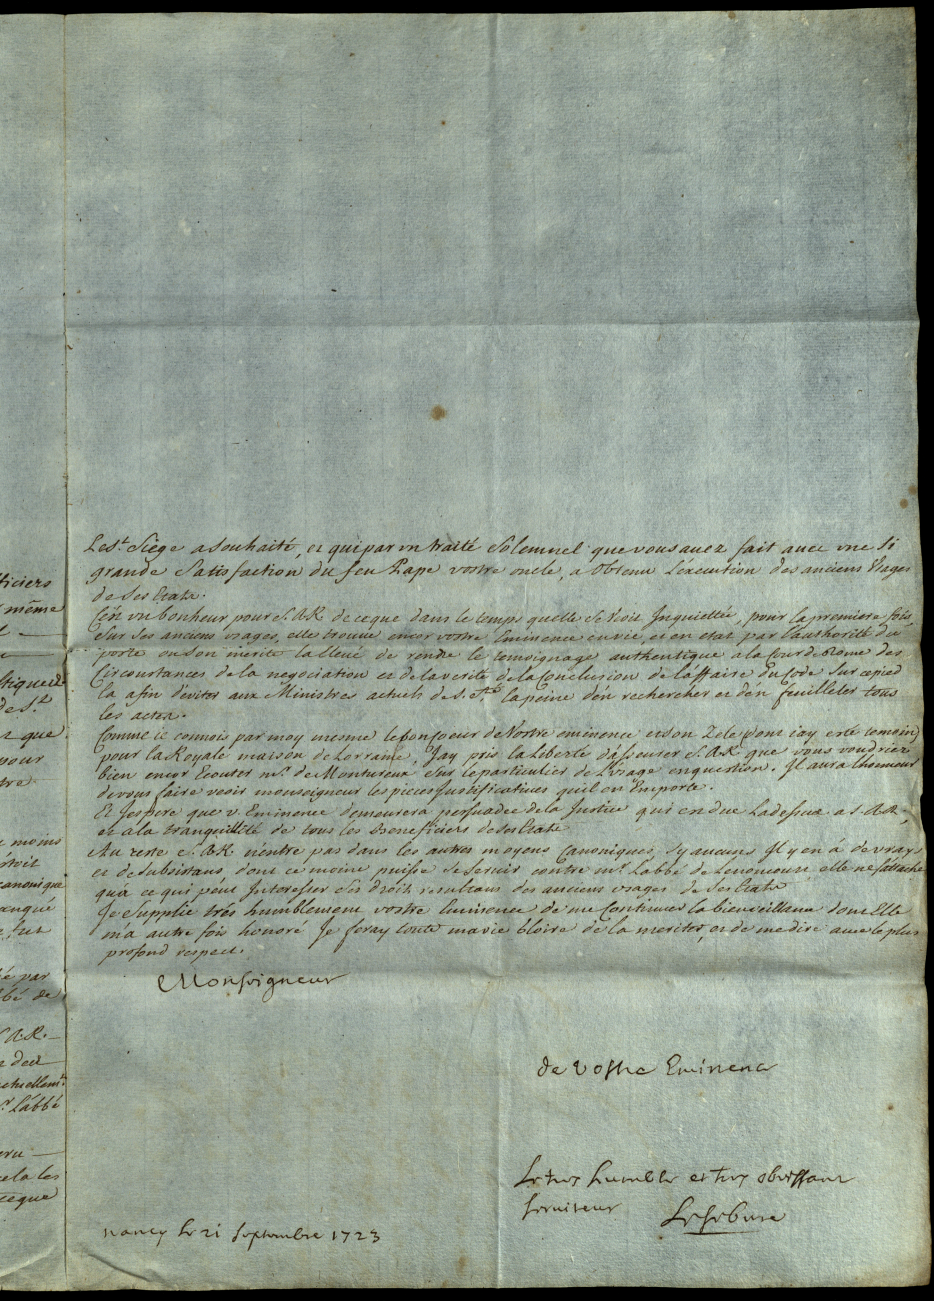 Le St. Siège a souhaité, et qui par un traité solemnel que vous auez fait auec une si
grande satisfaction du feu Pape vostre oncle, a obtenu l'execution des anciens usages
de ses Etats.
C'est un bonheur pour S. A R. de ce que dans le temps quelle se voit Inquiettée, pour la premiere fois
sur ses anciens usages, elle trouue encor vostre Eminence en vie, et en etat par l'authorité du
poste ou son merite l'a Eleué de rendre le temoignage authentique a la Cour de Rome des
Circonstances de la negociation et de la verité de la Conclusion de l'affaire du Code sur ce pied
la afin d'eviter aux Ministres actuels de S. Sté. la peine d'en rechercher et d'en feuilleter tous
les actes.
Comme ie connois par moy mesme le bon coeur de Vostre eminence et son Zele dont i'ay esté temoin
pour la Royale maison de Lorraine, J'ay pris la liberté d'asseurer S. A R. que vous voudriez
bien encor Ecouter mr. de Montureux sur le particulier de l'usage en question. Il aura l'honneur
de vous faire veoir monseigneur les pieces Justificatiues qu'il en Emporte.
Et J'espere que v. Eminence demeurera persuadée de la Justice qui est due La dessus a S. A R.,
et a la tranquillité de tous les Beneficiers de ses Etats.
Au reste S. A R. n'entre pas dans les autres moyens Canoniques, s'y aucuns Il y en à de vrays
et de subsistans, dont ce moine puisse se seruir contre mr. l'abbé de Lenoncourt elle ne s'attache
qu'à ce qui peut Interesser ses droits resultans des anciens usages de ses Etats
Je supplie trés humblement vostre Eminence de me Continuer la bienveillance dont Elle
m'a autre fois honoré Je feray toute ma vie Gloire de la meriter, et de me dire auec le plus
profond respect.
Monseigneur
de Vostre Eminence
Le tres humble et tres obeissant
seruiteur
Lefebure
nancy le 21 septembre 1723
fficiers
même
de St.
que
pour
moins
canonique
manqué
par
abbé de
S. A. R.
actuellemt.
mr. L'abbé
cela les
ce que